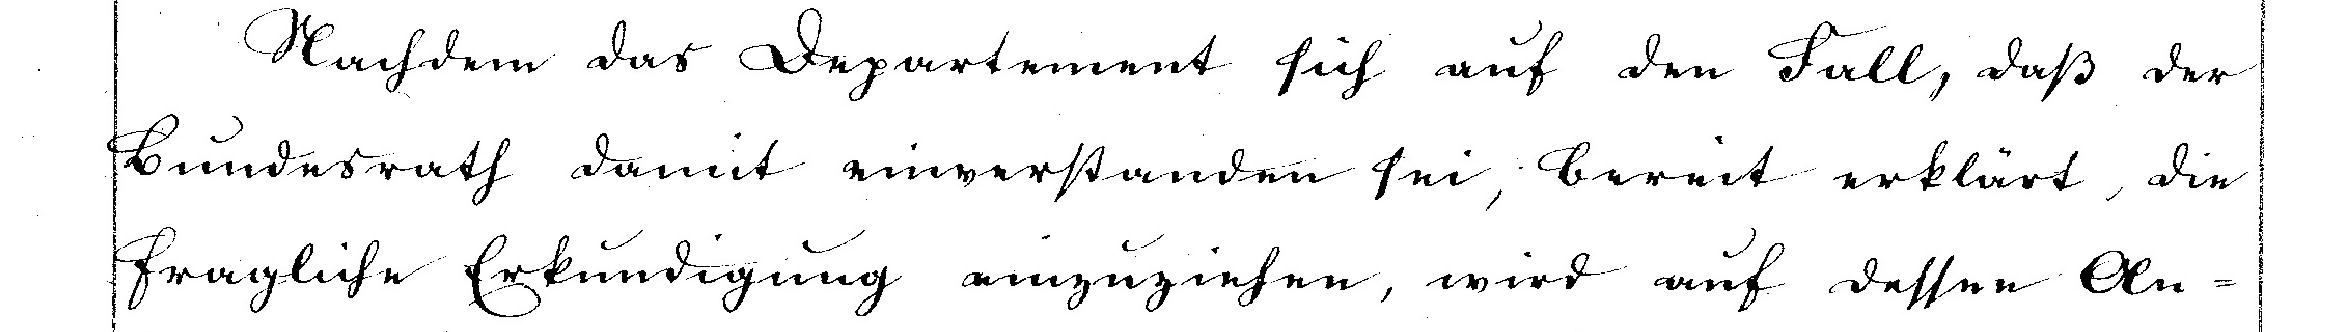 Nachdem das Departement sich auf den Fall, daß der
Bundesrath damit einverstanden sei, bereit erklärt, die
fragliche Erkundigung einzuziehen, wird auf dessen An=